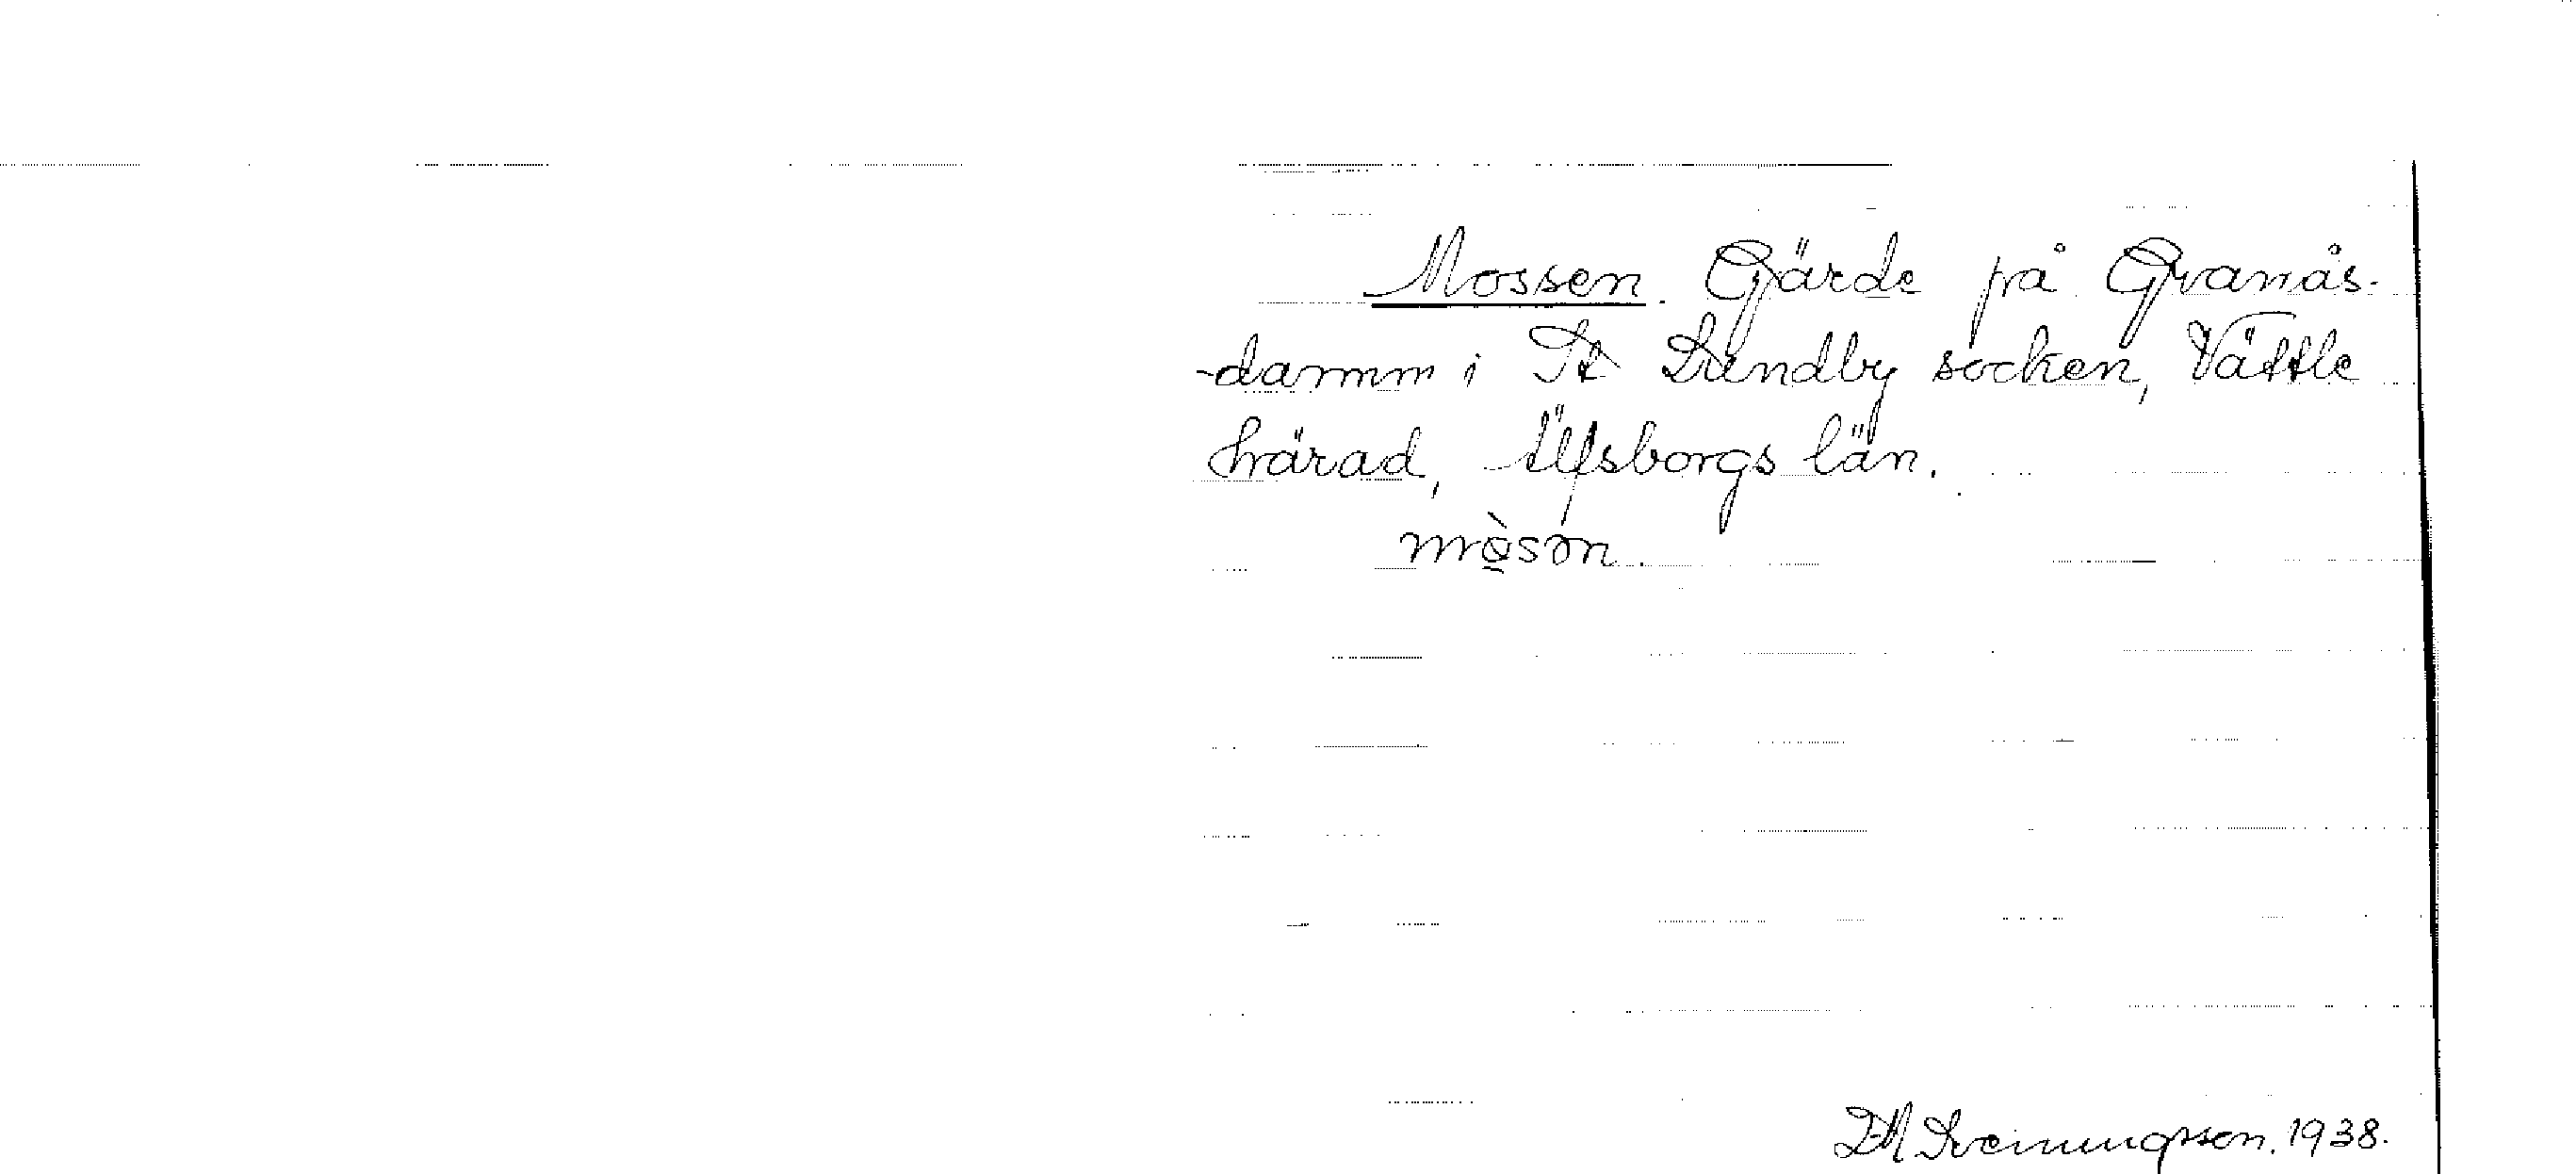 Mossen. Gärde på Granås-
-damm i St Lundby socken, Vättle
härad, Älfsborgs län.
mòsòn.
1938.